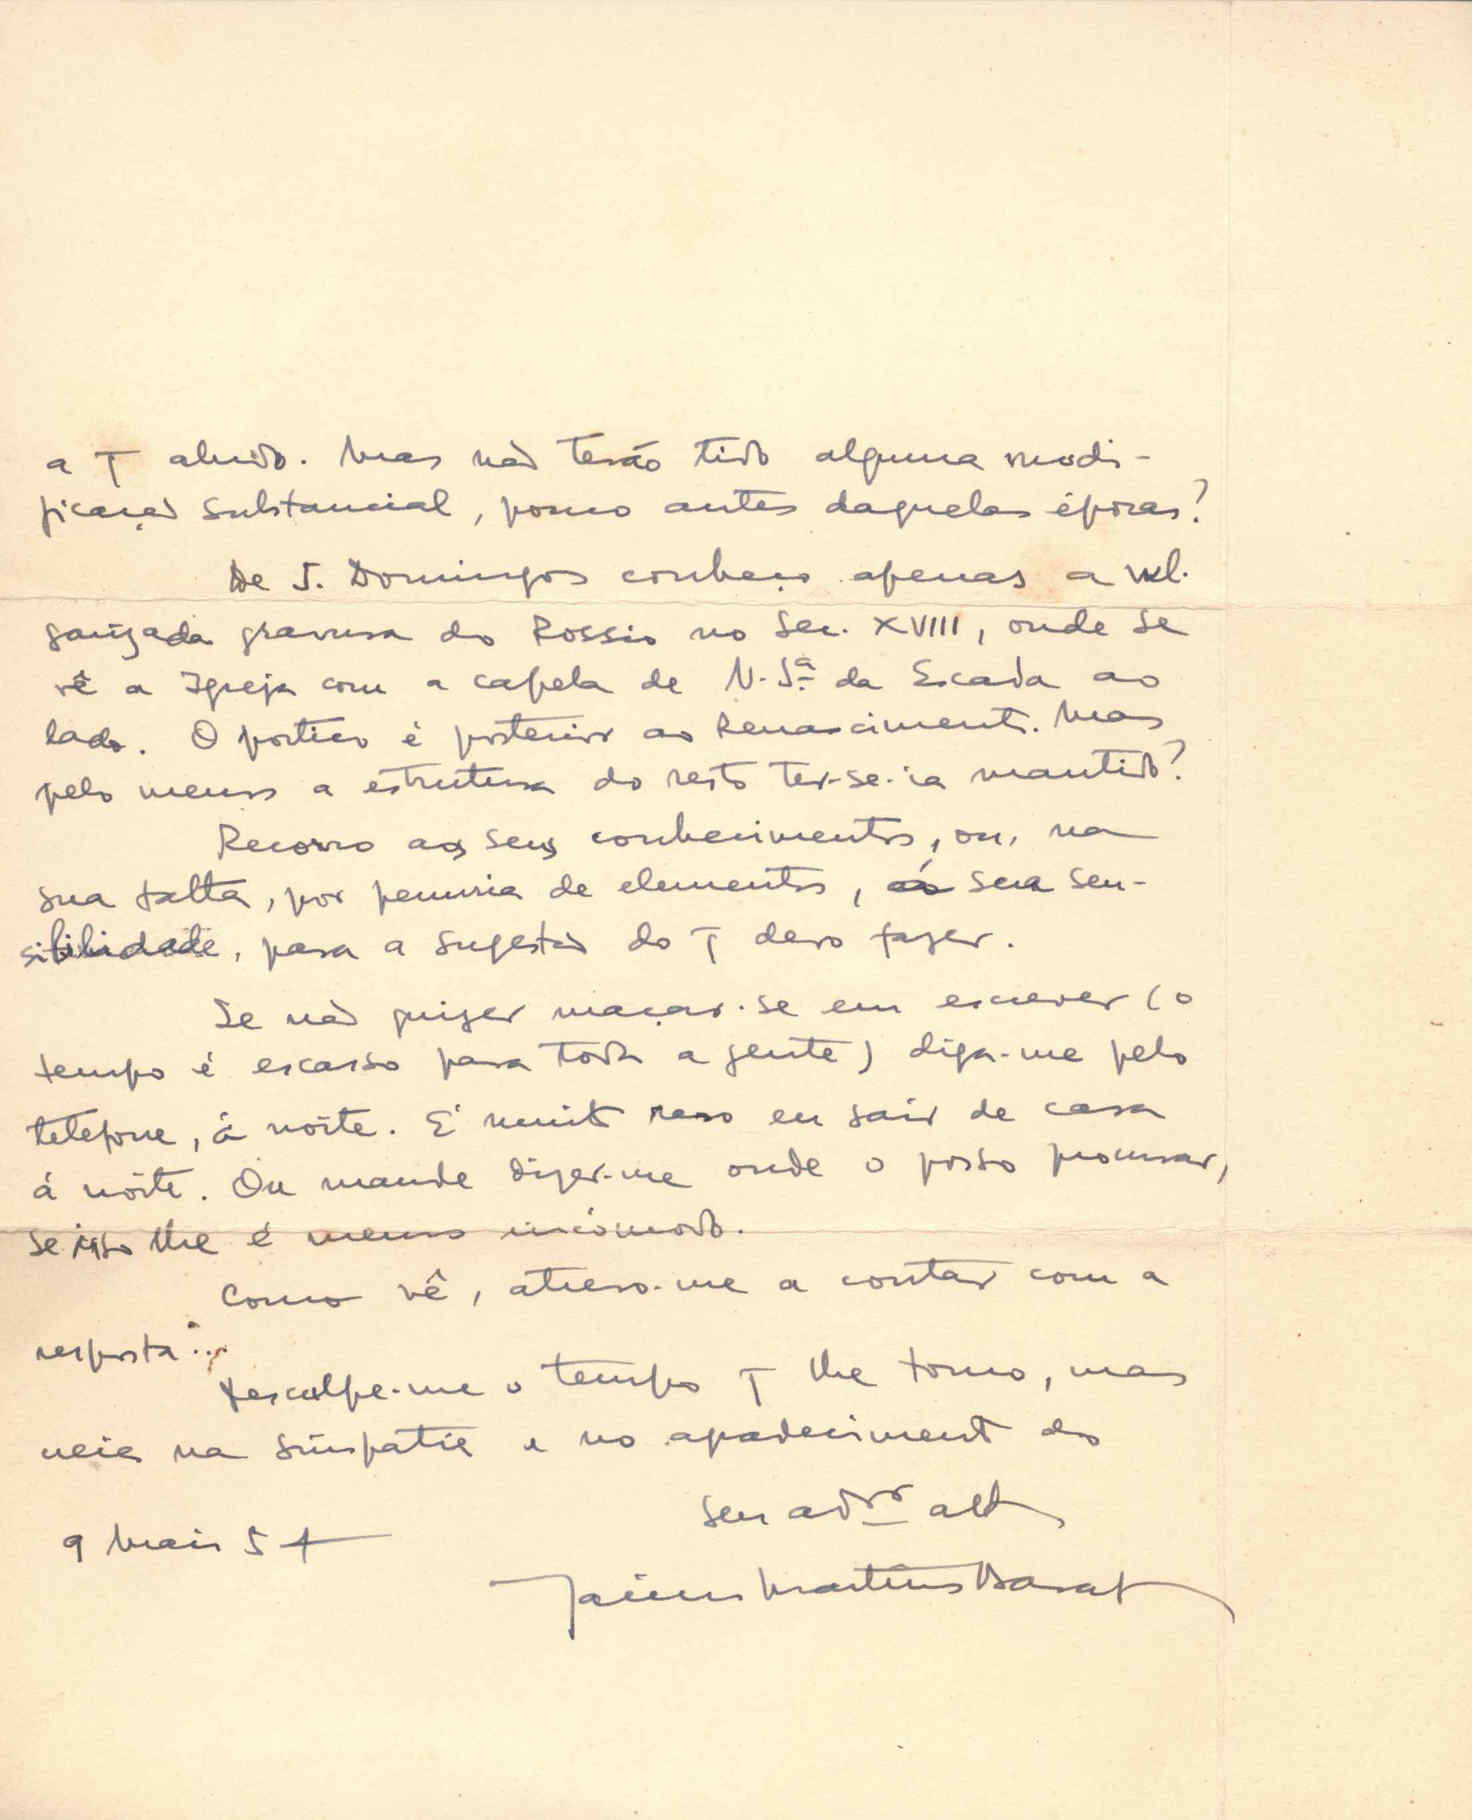 a q̃ aludo. Mas não terão tido alguma modi-
ficação substancial, pouco antes daquelas épocas?
De S. Domingos conheço apenas a vul-
garizada gravura do Rossio no Sec. XVIII, onde se
vê a Igreja com a capela de N. Sª da Escada ao
lado. O portico é posterior ao Renascimento. Mas
pelo menos a estrutura do resto ter-se-ia mantido?
Recorro aos seus conhecimentos, ou, na
sua falta, por penuria de elementos, á sua sen-
sibilidade, para a sugestão do q̃ devo fazer.
Se não quizer maçar-se em escrever (o
tempo é escasso para toda a gente) diga-me pelo
telefone, á noite. É muito raro eu sair de casa
á noite. Ou mande dizer-me onde o posso procurar,
se isso lhe é menos incómodo.
Como vê, atrevo-me a contar com a
resposta...
Desculpe-me o tempo q̃ lhe tomo, mas
creia na simpatia e no agradecimento do
seu adºr atº
9 Maio 54
Jaime Martins Barata